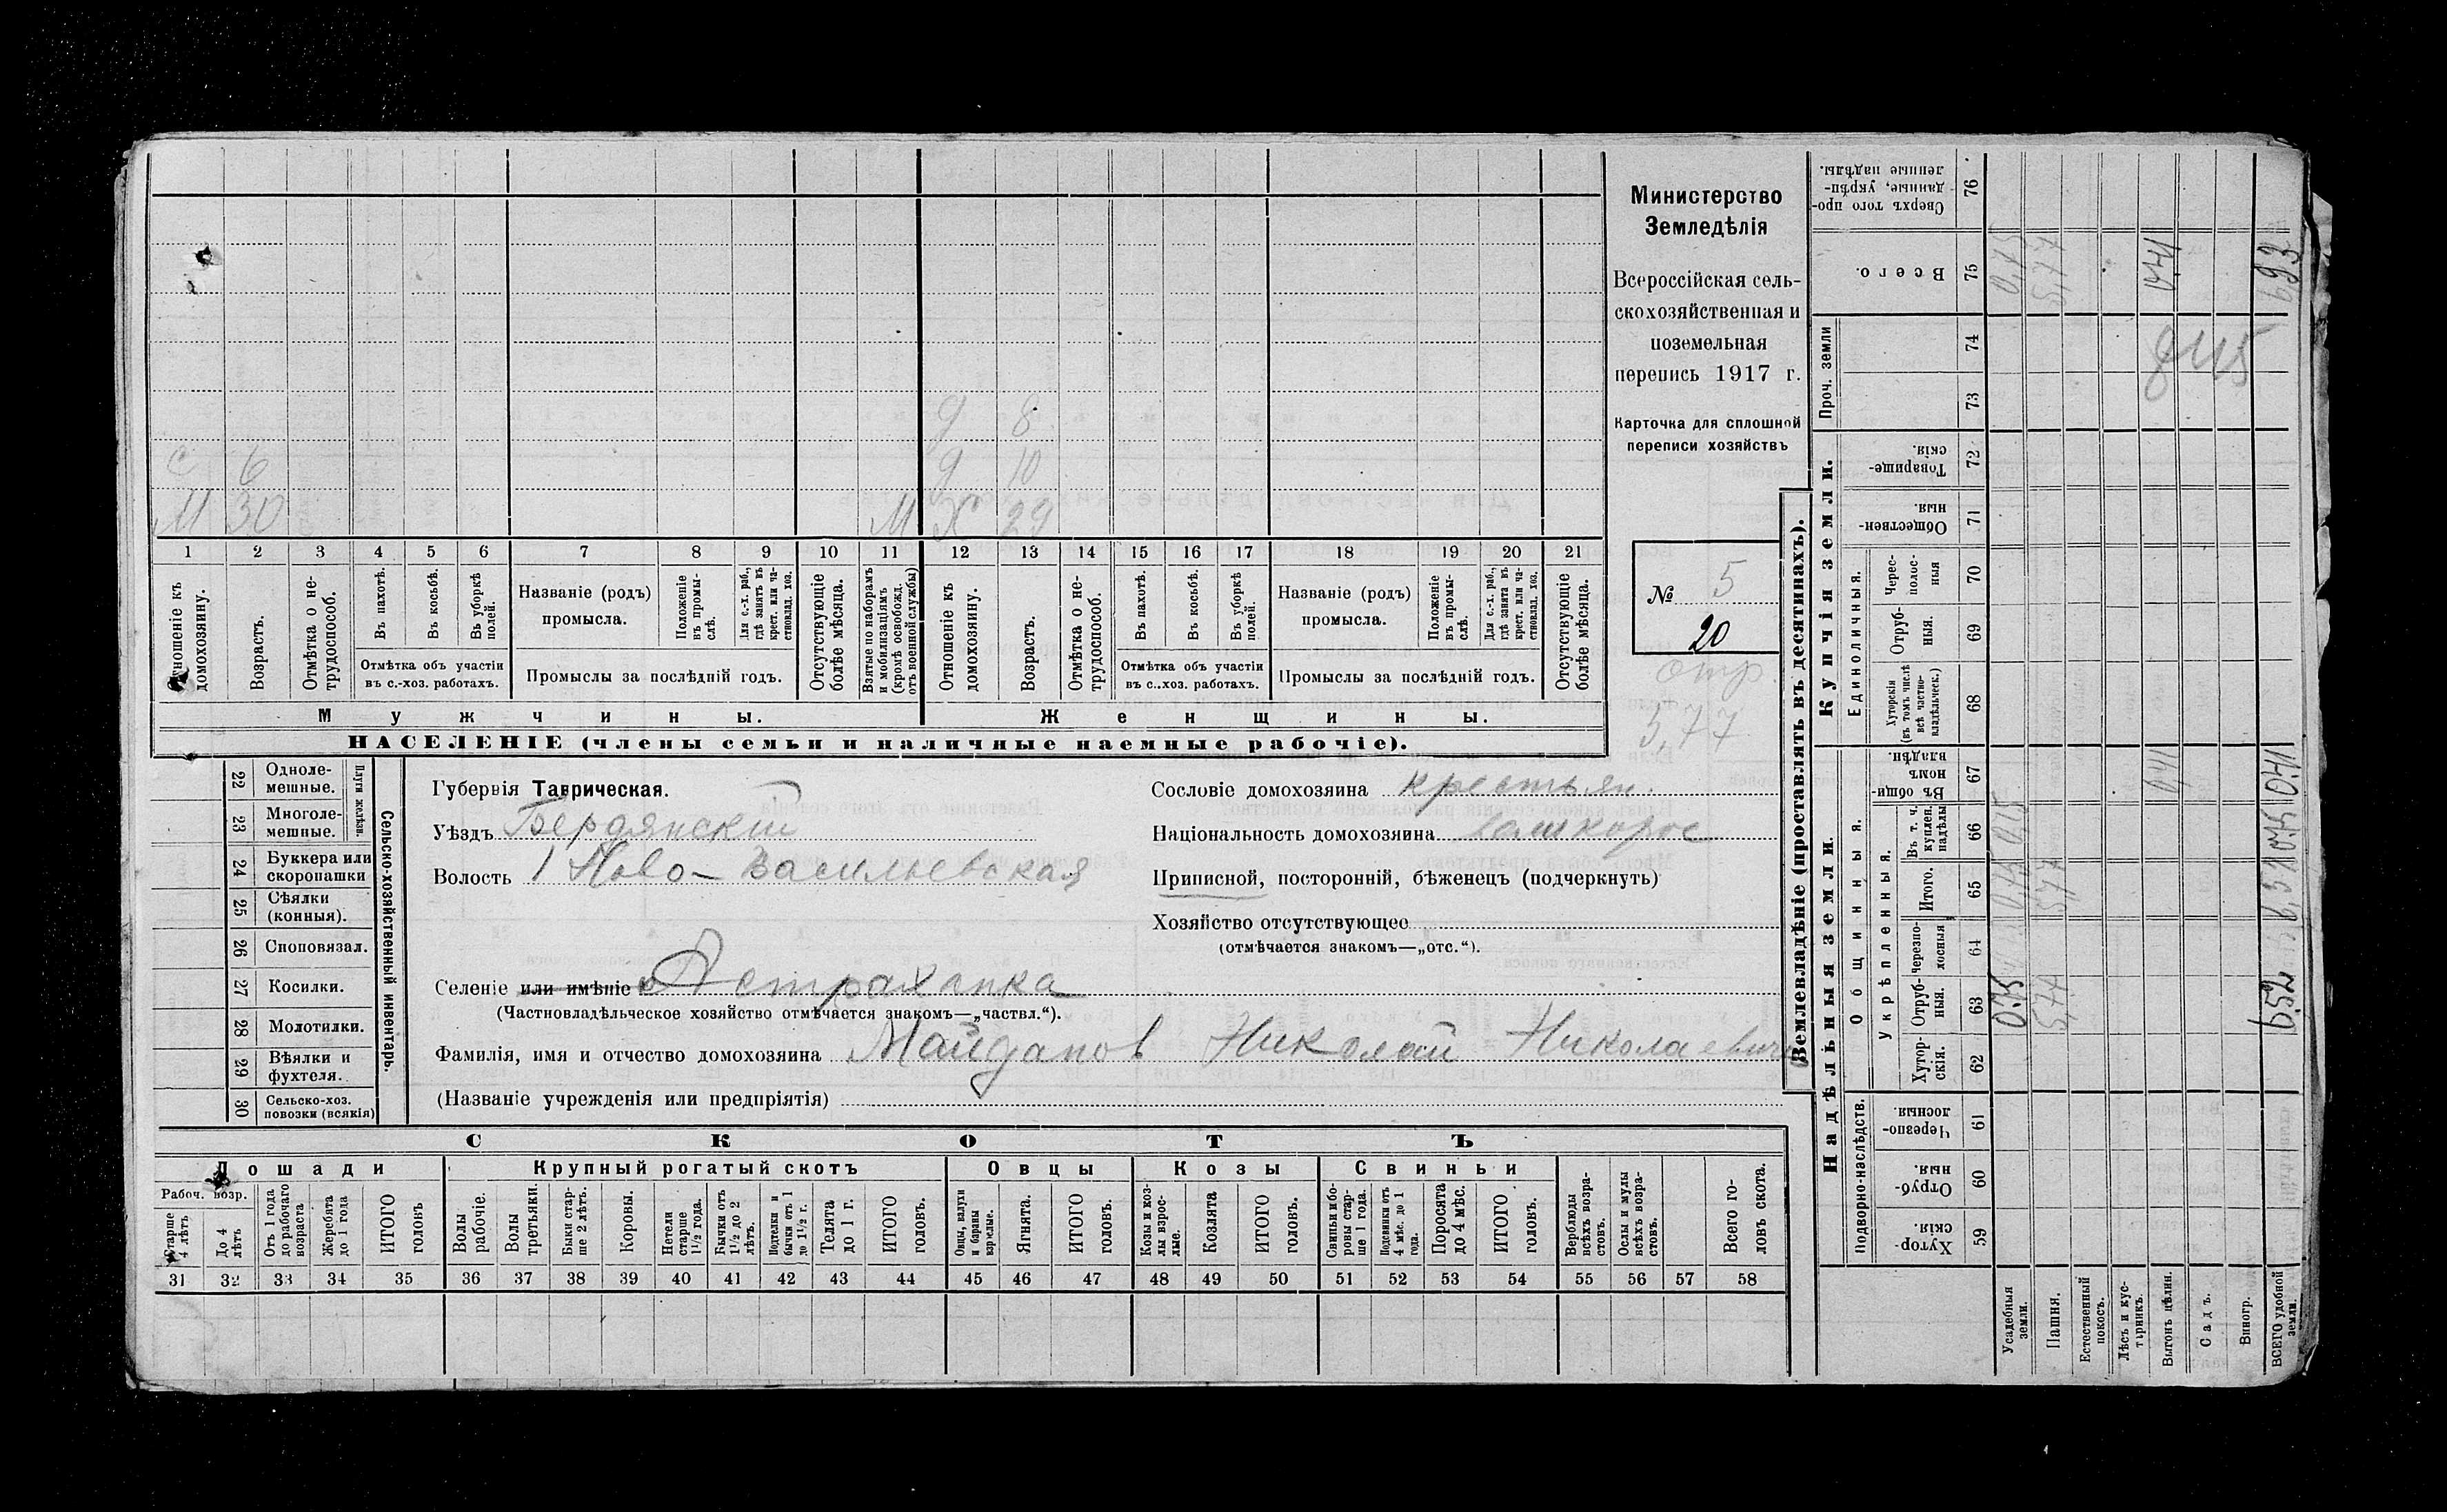 Министерство
Земледѣлія
Всероссійская сель-
скохозяйственная и
поземельная
перепись 1917 г.
Карточка для сплошной
переписи хозяйствъ
№ 5
20
отр.
5,77
д 8
с 6 д 10
М 30 М Х 29
1 2 3 4 5 6 7 8 9 10 11 12 13 14 15 16 17 18 19 20 21
Отношеніе къ домохозяину.
Возрастъ.
Отмѣтка о не-трудоспособ.
Въ пахотѣ.
Въ косьбѣ.
Въ уборкѣ полей.
Отмѣтка объ участіи
въ с.-хоз. работахъ.
Названіе (родъ)
промысла.
Положеніе въ промы-слѣ.
Для с.-х. раб., гдѣ занятъ въ крест. или ча-стновлад. хоз.
Промыслы за послѣдній годъ.
Отсутствующіе болѣе мѣсяца.
Взятые по наборамъ и мобилизаціямъ (кромѣ освобожд. отъ военной службы)
Отношеніе къ домохозяину.
Возрастъ.
Отмѣтка о не-трудоспособ.
Въ пахотѣ.
Въ косьбѣ.
Въ уборкѣ полей.
Отмѣтка объ участіи
въ с.-хоз. работахъ.
Названіе (родъ)
промысла.
Положеніе въ промы-слѣ.
Для с.-х. раб., гдѣ занята въ крест. или ча-стновлад. хоз.
Промыслы за послѣдній годъ.
Отсутствующіе болѣе мѣсяца.
Мужчины. Женщины.
НАСЕЛЕНІЕ (члены семьи и наличные наемные рабочіе).
22 Одноле-мешные.
23 Многоле-мешные.
Плуги желѣзн.
24 Буккера или скоропашки
25 Сѣялки (конныя).
26 Сноповязал.
27 Косилки.
28 Молотилки.
29 Вѣялки и фухтеля.
30 Сельско-хоз. повозки (всякія)
Сельско-хозяйственный инвентарь.
Губернія Таврическая.
Уѣздъ Бердянскій
Волость 1 Ново-Васильевская
Селеніе или имѣніе Астраханка
(Частновладѣльческое хозяйство отмѣчается знакомъ—„частвл.“).
Фамилія, имя и отчество домохозяина Майданов Николай Николаевич
(Названіе учрежденія или предпріятія)
Сословіе домохозяина крестьян.
Національность домохозяина
Приписной, посторонній, бѣженецъ (подчеркнуть)
Хозяйство отсутствующее
(отмѣчается знакомъ—„отс.“).
СКОТЪ
Лошади Крупный рогатый скотъ Овцы Козы Свиньи
Рабоч. возр.
Старше 4 лѣтъ
До 4 лѣтъ
Отъ 1 года до рабочаго возраста
Жеребята до 1 года
ИТОГО головъ
Волы рабочіе.
Волы третьяки.
Быки стар-ше 2 лѣтъ.
Коровы.
Нетели старше 1½ года.
Бычки отъ 1½ до 2 лѣтъ.
Подтелки и бычки отъ 1 до 1½ г.
Телята до 1 г.
ИТОГО головъ.
Овцы, валухи и бараны взрослые.
Ягнята.
ИТОГО головъ.
Козы и коз-лы взрос-лые.
Козлята
ИТОГО головъ.
Свиньи и бо-ровы стар-ше 1 года.
Подсвинки отъ 4 мѣс. до 1 года.
Поросята до 4 мѣс.
ИТОГО головъ.
Верблюды всѣхъ возра-стовъ.
Ослы и мулы всѣхъ возра-стовъ.
Всего го-ловъ скота.
31 32 33 34 35 36 37 38 39 40 41 42 43 44 45 46 47 48 49 50 51 52 53 54 55 56 57 58
Землевладѣніе (проставлять въ десятинахъ).
Надѣльныя земли. Купчія земли.
Подворно-наслѣдств.
Общинныя.
Укрѣпленныя.
Единоличныя.
Проч. земли
Хутор-скія. 59
Отруб-ныя. 60
Черезпо-лосныя. 61
Хутор-скія. 62
Отруб-ныя. 63
Черезпо-лосныя 64
Итого. 65
Въ т. ч. куплен. надѣлы 66
Въ общин-номъ владѣн. 67
Хуторскія (въ томъ числѣ всѣ частно-владѣльческ.) 68
Отруб-ныя. 69
Черес-полос-ныя 70
Обществен-ныя. 71
Товарище-скія. 72
73
74
Всего. 75
Сверхъ того про-данные, укрѣп-ленные надѣлы. 76
Усадебныя земли. 0.75 0,75 0,15 0,75
Пашня. 5,77 5,77 5,77
Естественный покосъ.
Лѣсъ и кус-тарникъ.
Выгонъ цѣлин. 0,41 0,41
Садъ.
Виногр.
ВСЕГО удобной земли. 6.52 0.75 0.41 6,93